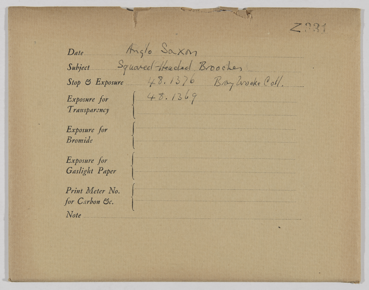 Z2291
Date Anglo Saxon
Subject Squared-Headed Brooches
Stop & Exposure 48.1370 Braybrooke Coll.
Exposure for 48.1369
Transparency
Exposure for
Bromide
Exposure for
Gaslight Paper
Print Meter No.
for Carbon &c.
Note